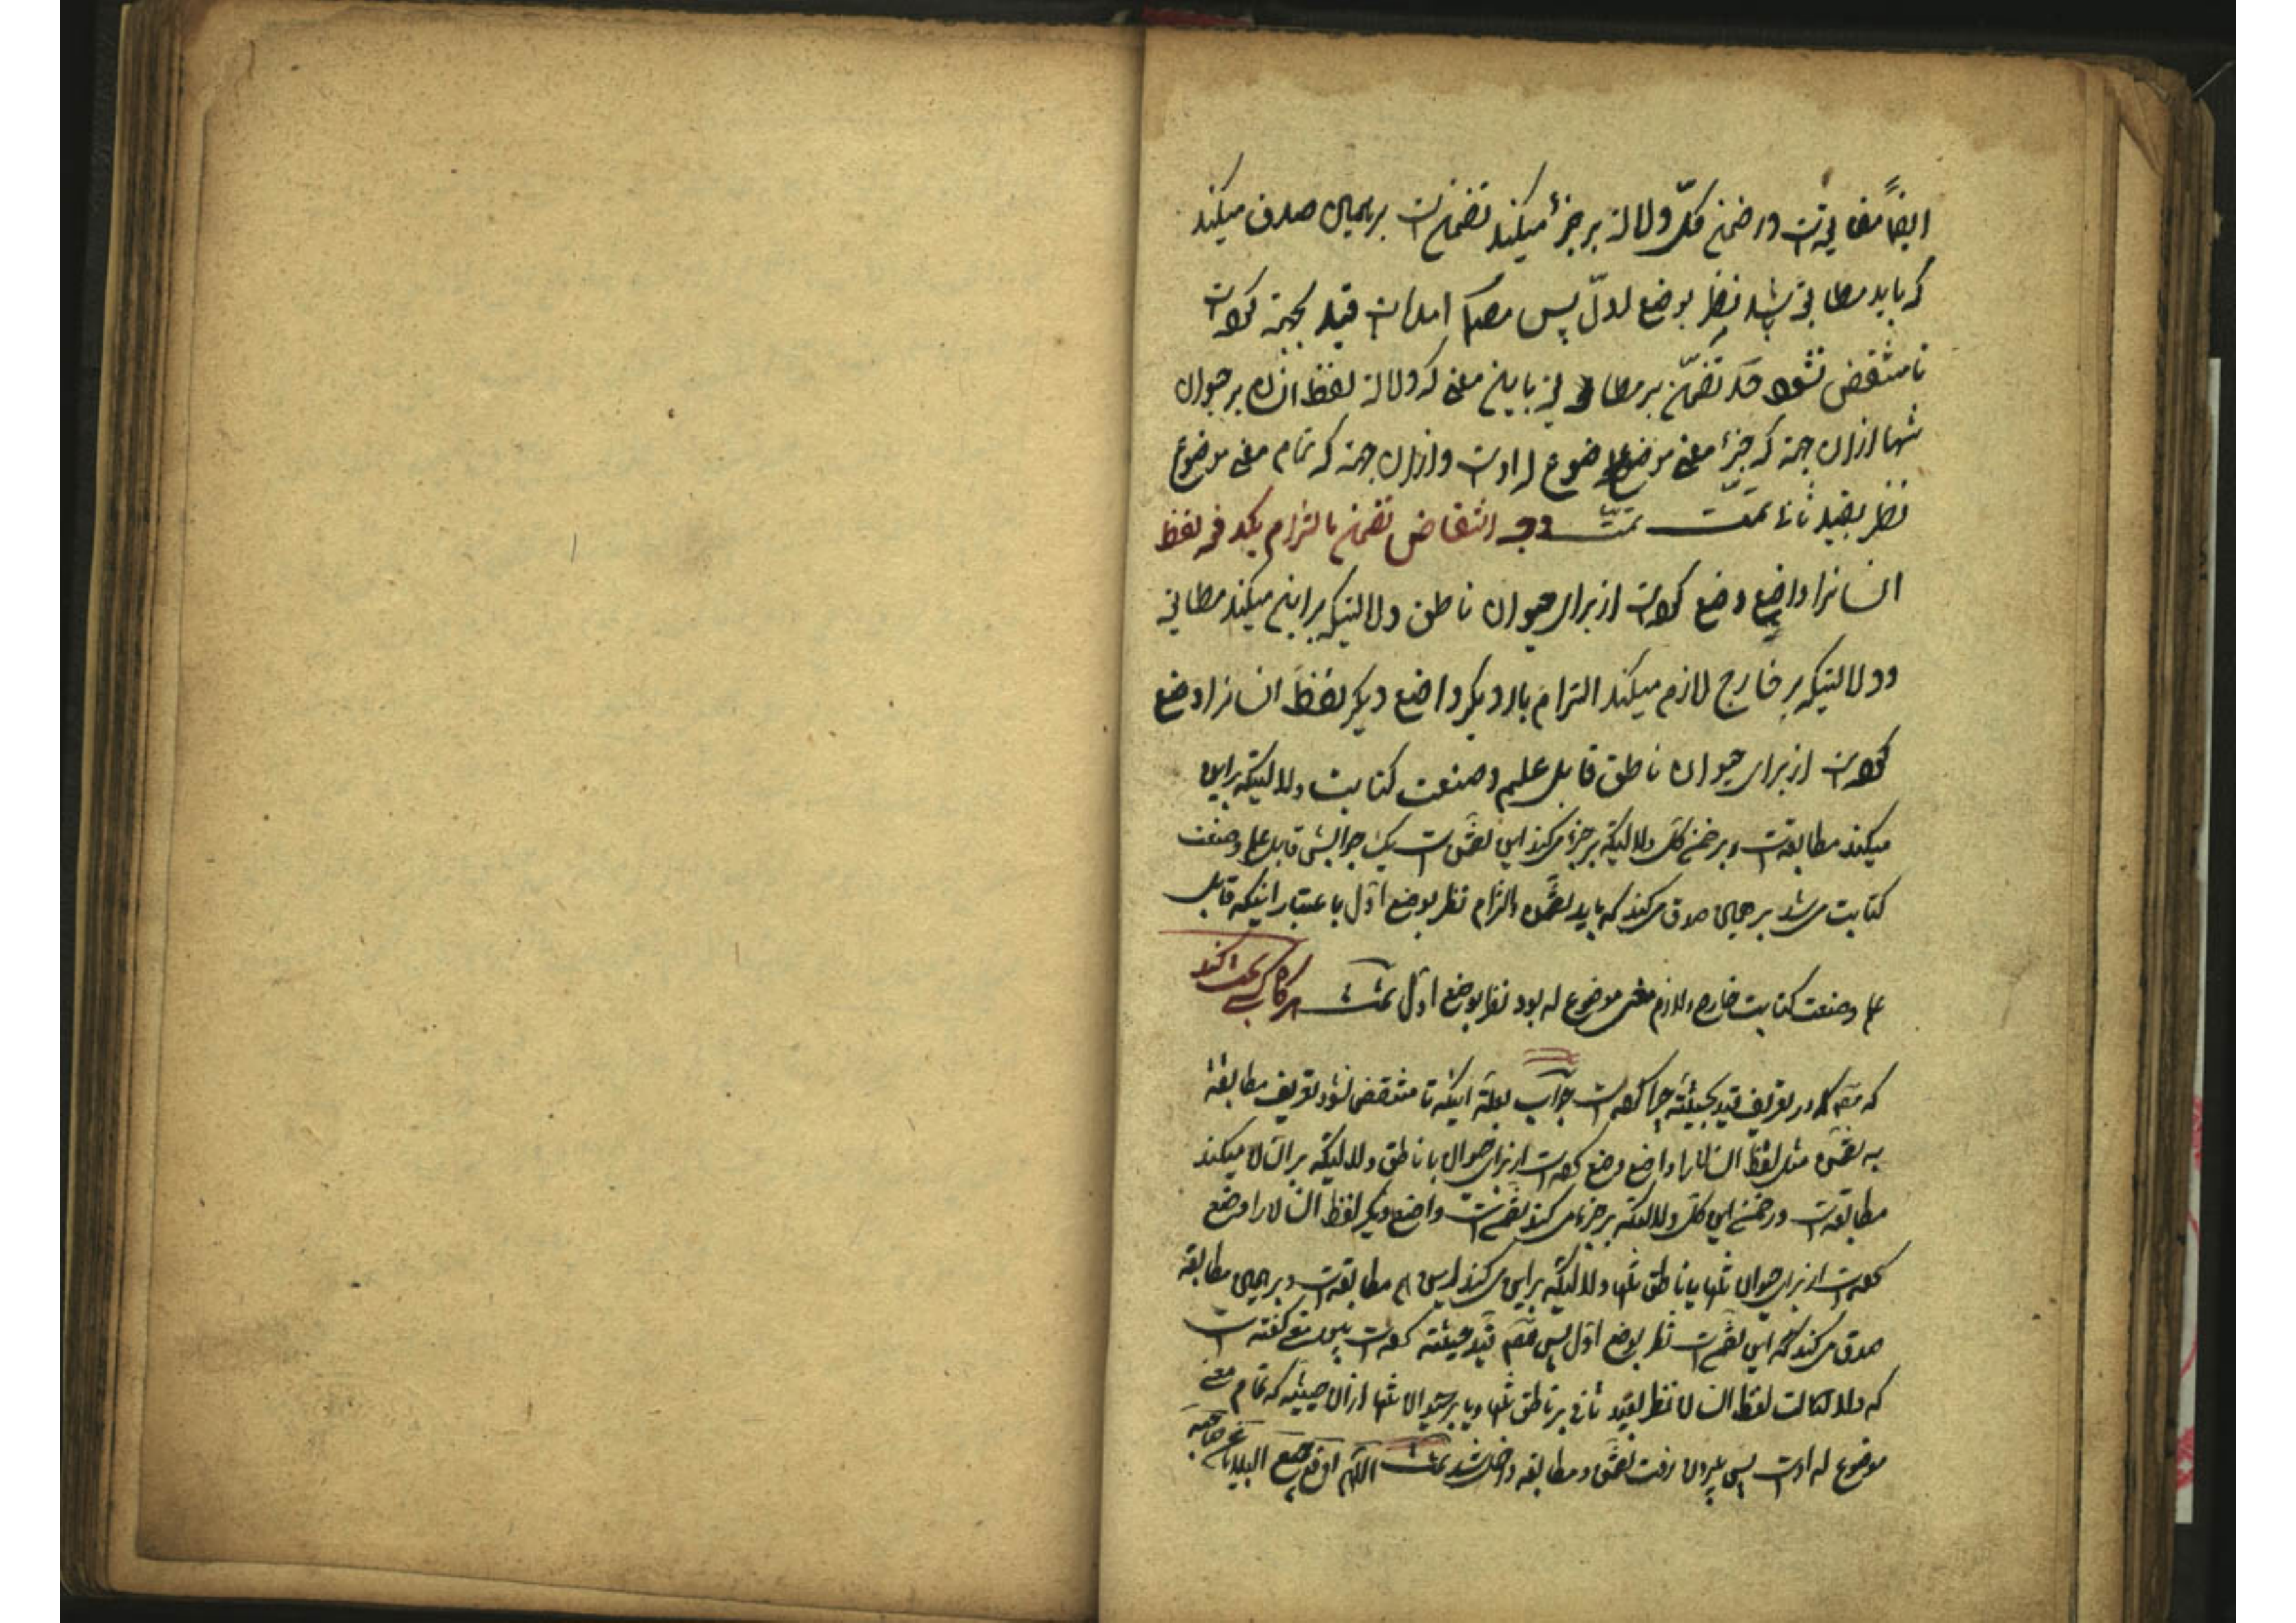 ایضاً مطابقیست در ضمن کلّ دلالة بر جزء میکند تضمنست بر همین صدق میکند
که باید مطابقی باشد نظر بوضع اول پس مصنف آمدست قید بحیثیة کردست
تا منتقض نشود حد تضمّن بر مطابقی باین معنی که دلالة لفظ انسان بر حیوان
تنها ازان جهة که جزء معنی موضوع له اوست و ازان جهة که تمام معنی موضوع
نظر بقید ثانی تمت تمت وجه انتقاض تضمن بالتزام بکد فی لفظ
انسانرا واضع وضع کردست از برای حیوان ناطق دلالتیکه بر این میکند مطابقی
و دلالتیکه بر خارج لازم میکند التزام بار دیگر واضع دیگر لفظ انسانرا وضع
کردست از برای حیوان ناطق قابل علم و صنعت کتابت دلالتیکه بر این
میکند مطابقست و بر ضمن کل دلالتیکه بر جزء میکند این تضمن است یک جزایش قابل علم و صنعت
کتابت میشد بر همین صدق میکند که باید التزام نظر بوضع اول باعتبار اینکه قابل
علم و صنعت کتابت خارج و لازم معنی موضوع له بود نظر بوضع اول تمت اگر کسی بحث کند
که مصنف در تعریف قید بحیثیة چرا کردست جواب بعلة اینکه تا منتقض نشود تعریف مطابقة
به تضمن مثل لفظ انسان را واضع وضع کردست از برای حیوان با ناطق دلالتیکه بر انسان میکند
مطابقست در ضمن این کل دلالتیکه بر جزء میکند تضمنست واضع دیگر لفظ انسان را وضع
کردست از برای حیوان تنها یا ناطق تنها دلالتیکه بر این میکند مطابقست و بر همین مطابقة
صدق میکند که این تضمنست نظر بوضع اول پس مصنف قید حیثیة کردست پس گفته است
که دلالت لفظ انسان نظر بقید ثانی بر ناطق تنها و یا بر حیوان تنها ازان حیثیة که تمام معنی
موضوع له اوست پس بیرون رفت تضمن و مطابقه داخل شد تمت اللهم ادفع جمیع البلایا عن صاحبه